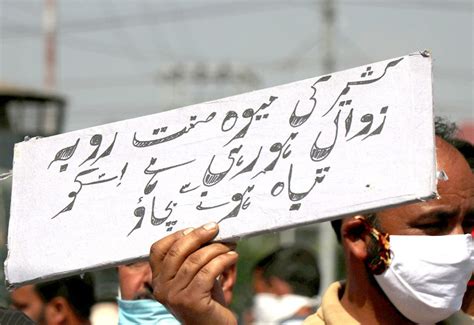 کشمیر کی میوہ صنعت روبہ
زوال ہورہی ہے اسکو
تباہ ہونے سے بچاؤ